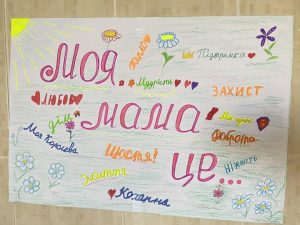 Моя
тепло
Мудрість
Підтримка
ЗАХИСТ
ЛЮБОВ
дім
мама
Моя королева
Доброта
Щастя!
це...
Ніжність
Життя
Кохання